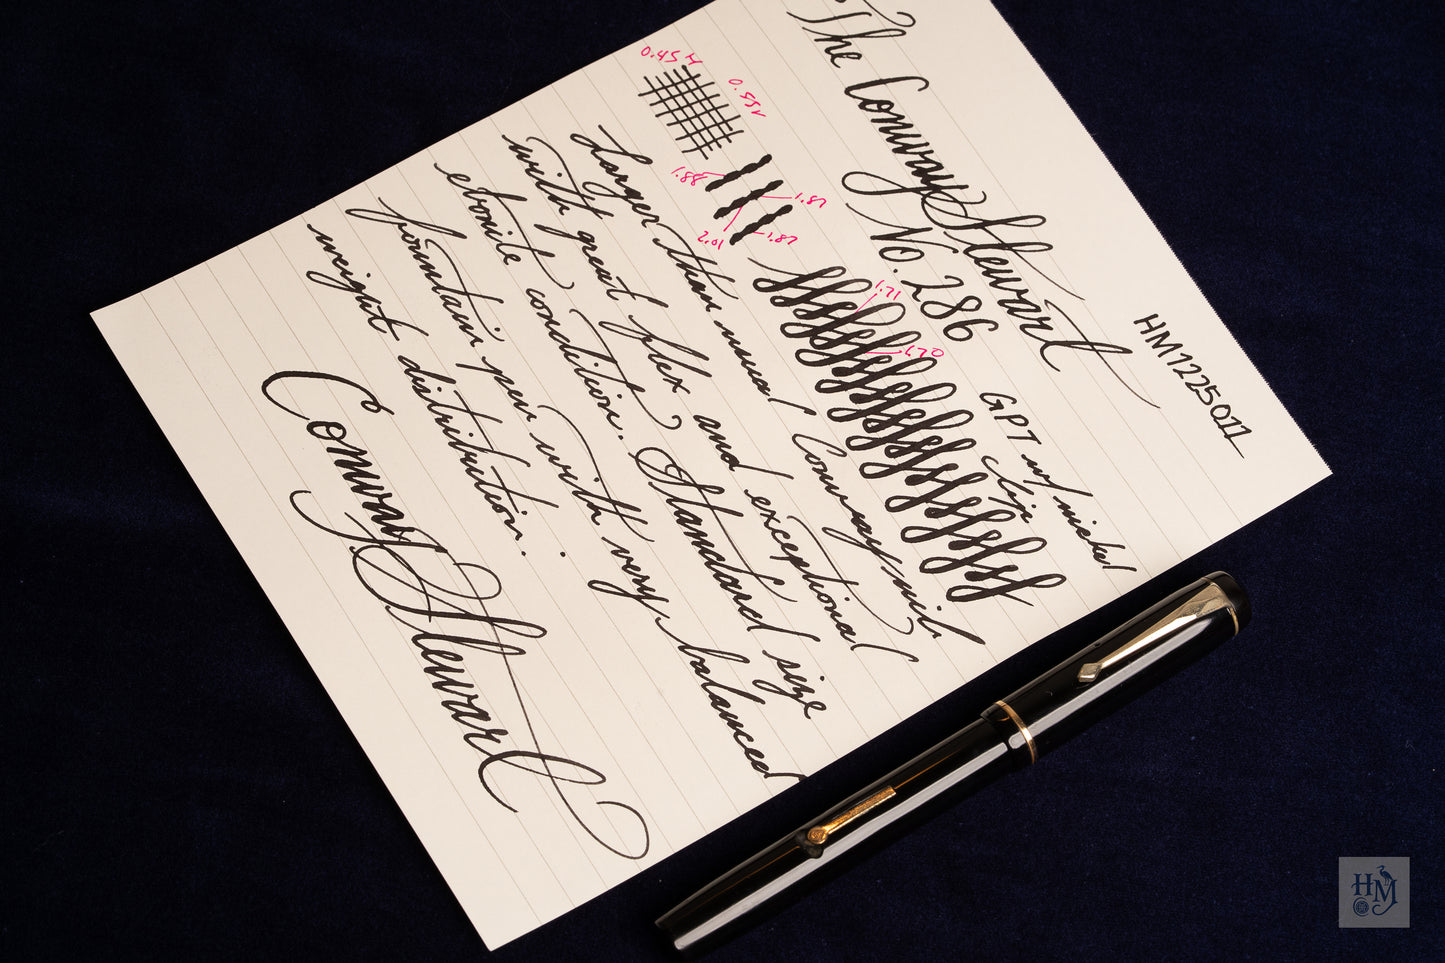 HM1225011
The Conway Stewart
No. 286
GPT w/ nickel
clip
0.45 H
0.55V
1.88
1.87
2.01
1.87
1.71
1.70
Larger than usual Conway nib
with great flex and exceptional
ebonite condition. Standard size
fountain pen with very balanced
weight distribution.
Conway Stewart
HM